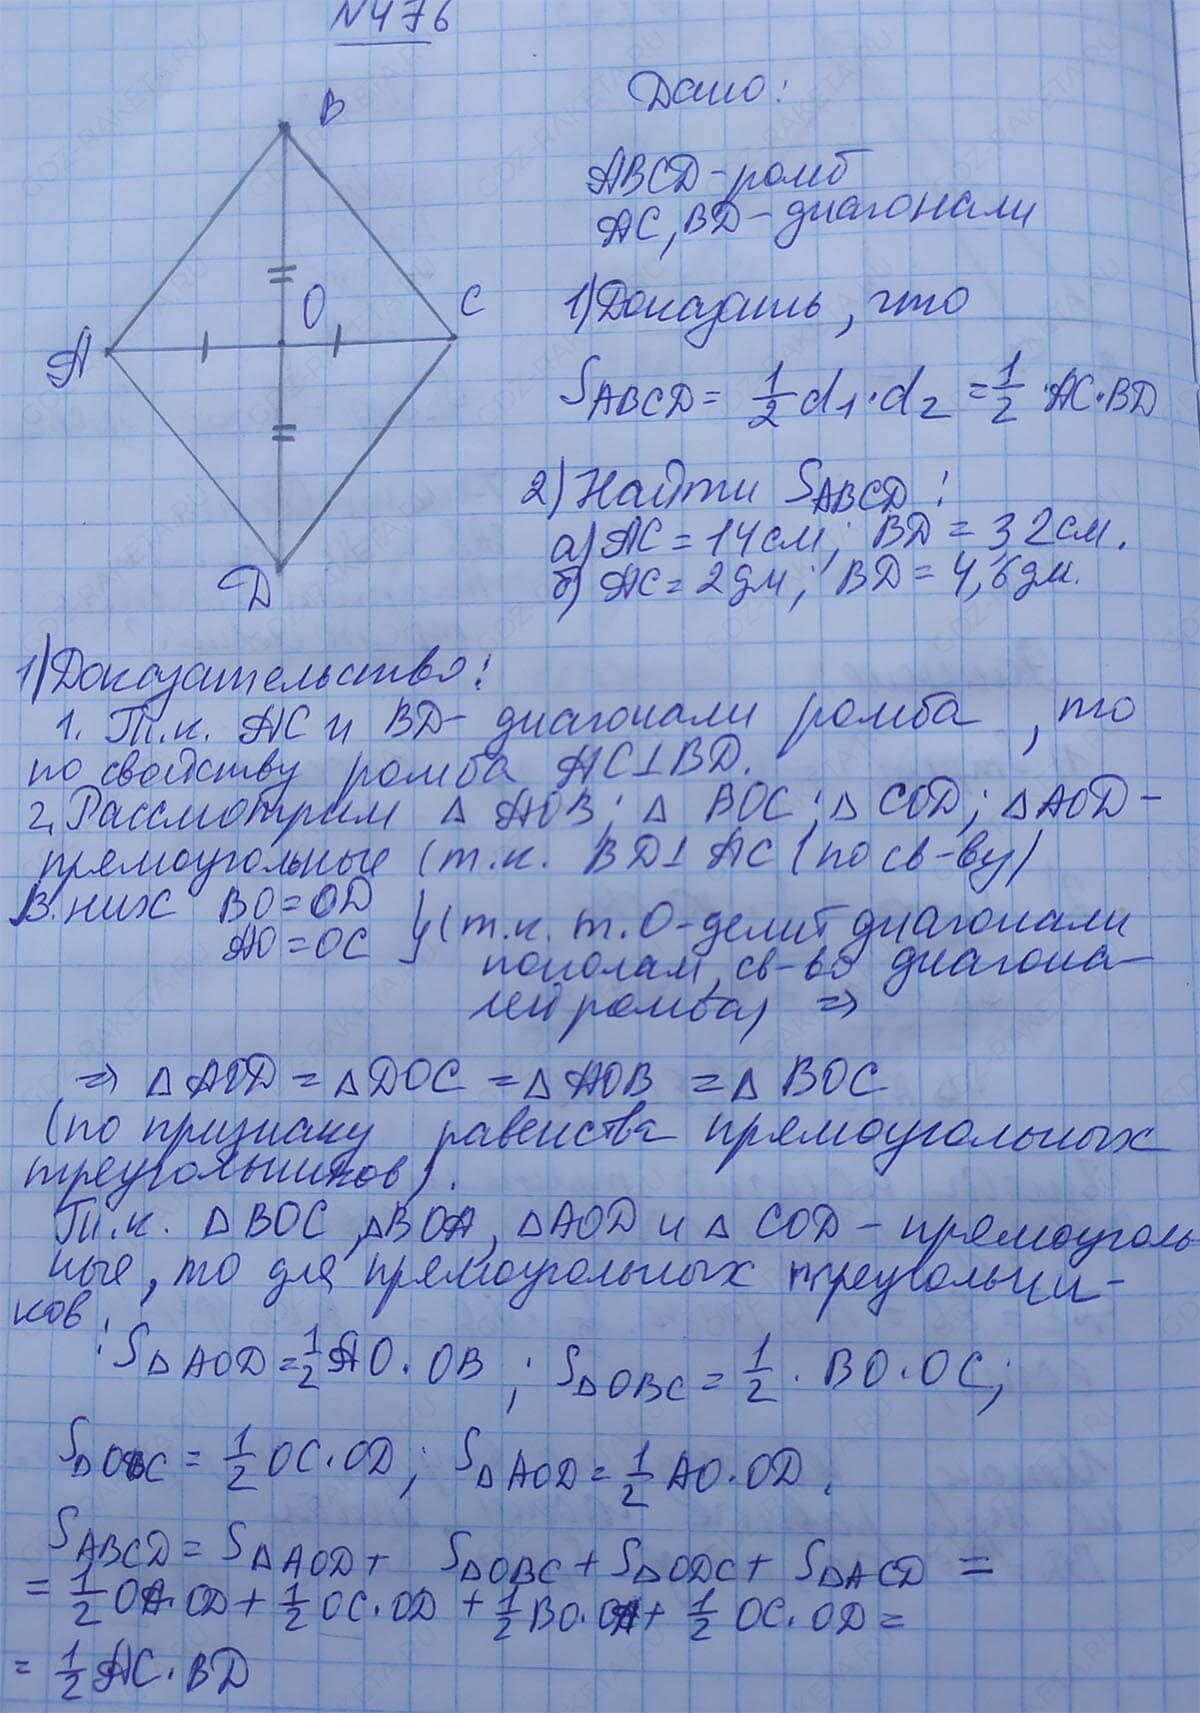 N476
B
Дано:
ABCD - ромб
AC, BD - диагонали
O
C
A
D
1) Доказать, что
S_ABCD = 1/2 d1·d2 = 1/2 ·AC·BD
2) Найти S_ABCD:
а) AC = 14 см; BD = 32 см.
б) AC = 2 дм; BD = 4,6 дм.
1) Доказательство:
1. Т.к. AC и BD - диагонали ромба, то
по свойству ромба AC⊥BD.
2. Рассмотрим △ AOB; △ BOC; △ COD; △ AOD -
прямоугольные (т.к. BD⊥AC (по св-ву)
В них BO = OD
AO = OC } (т.к. т. O - делит диагонали
пополам, св-во диагона-
лей ромба) ⇒
⇒ △ AOD = △ DOC = △ AOB = △ BOC
(по признаку равенства прямоугольных
треугольников).
Т.к. △ BOC, △ BOA, △ AOD и △ COD - прямоуголь
ные, то для прямоугольных треугольни-
ков:
S△AOD = 1/2 AO·OB; S△OBC = 1/2 · BO·OC;
S△OBC = 1/2 OC·OD; S△AOD = 1/2 AO·OD.
S_ABCD = S△AOD + S△OBC + S△ODC + S△ACD =
= 1/2 OA·OD + 1/2 OC·OD + 1/2 BO·OA + 1/2 OC·OD =
= 1/2 AC·BD